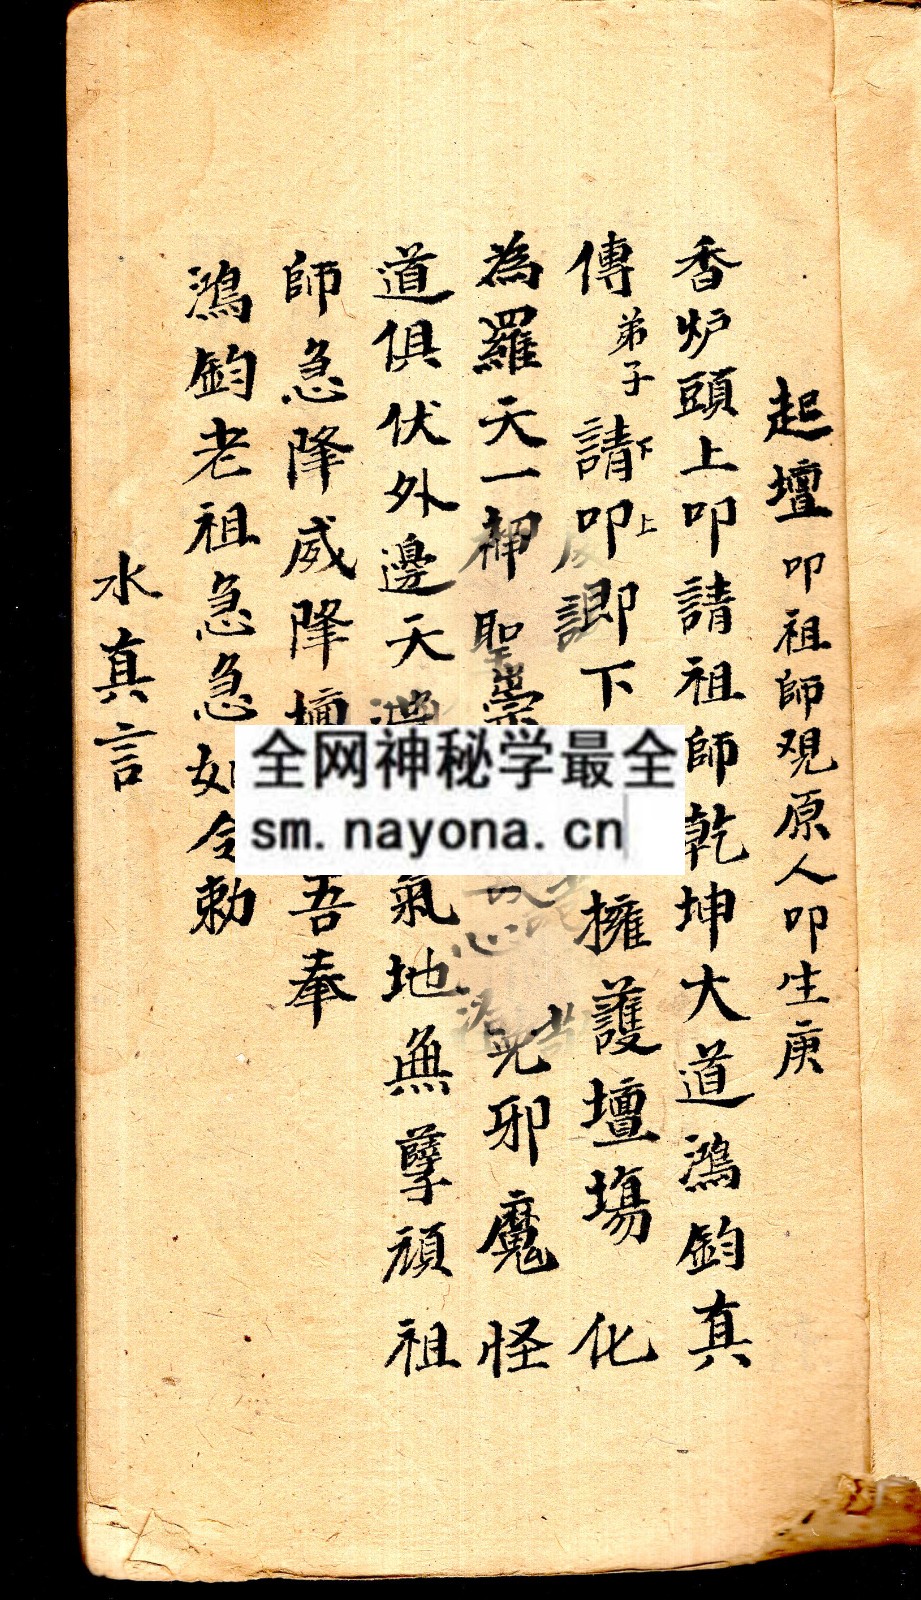 起壇 叩祖師覌原人叩生庚
香炉頭上叩請祖師乾坤大道鴻鈞真
傳弟子請下叩上即下擁護壇塲化
為羅天一神聖崇心光邪魔怪
道俱伏外邊天氣地無孽頑祖
師急降威降壇吾奉
鴻鈞老祖急急如令勅
水真言
全网神秘学最全
sm.nayona.cn